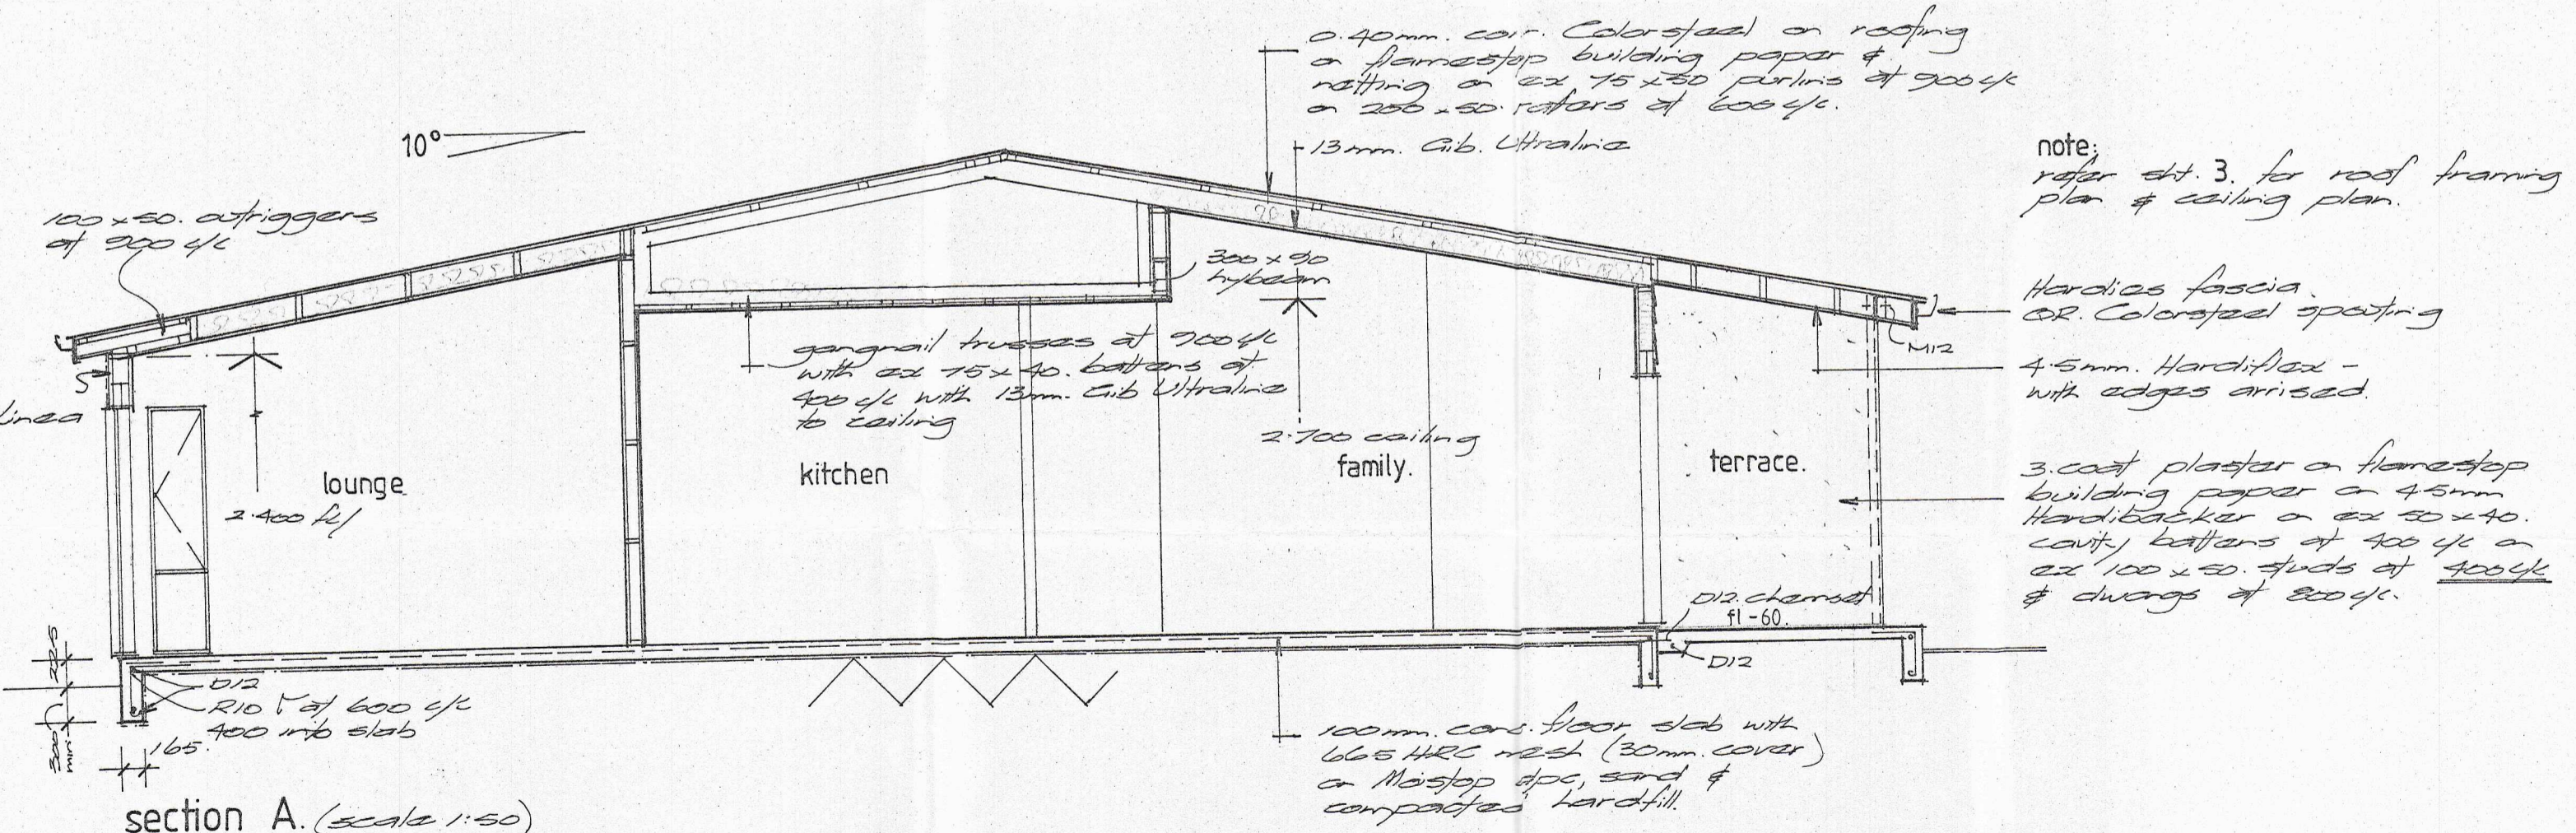 0.40mm. corr. Colorsteel on roofing
on flamestop building paper &
netting on ex 75x50 purlins at 900 c/c
on 200x50. rafers at 600 c/c.
13mm. Gib. Ultraline
10°
note:
refer sht. 3. for roof framing
plan & ceiling plan.
100x50. outriggers
at 900 c/c
300x90
hybeam
Hardies fascia.
QR. Colorsteel spouting
M12
gangnail trusses at 900 c/c
with ex 75x40. battens at
400 c/c with 13mm. Gib Ultraline
to ceiling
4.5mm. Hardiflex -
with edges arrised.
linea
2.700 ceiling
lounge
2.400 fc/
kitchen
family.
terrace.
3.coat plaster on flamestop
building paper on 4.5mm
Hardibacker on ex 50x40.
cavity battens at 400 c/c on
ex 100x50. studs at 400 c/c
& dwangs at 800 c/c.
D12. chemset
fl -60.
D12
225
300
min
165.
D12
R10 at 600 c/c
400 into slab
100mm. conc. floor slab with
665 HRC mesh (30mm. cover)
on Moistop dpc, sand &
compacted hardfill.
section A. (scale 1:50)